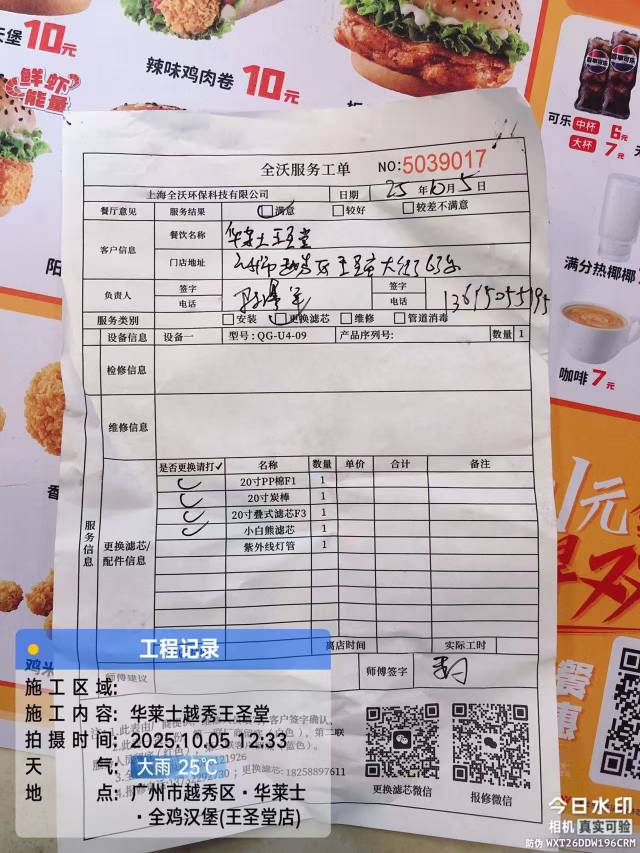 堡10元
辣味鸡肉卷 10元
鲜虾能量
可乐 中杯 6元
大杯 7元
满分热椰椰
咖啡 7元
全沃服务工单 NO:5039017
上海全沃环保科技有限公司 日期 25年10月5日
餐厅意见 服务结果 满意 较好 较差不满意
客户信息 餐饮名称 华莱士王圣堂
门店地址
负责人 签字 签字
电话 电话
服务类别 安装 更换滤芯 维修 管道消毒
设备信息 设备一 型号:QG-U4-09 产品序列号: 数量 1
检修信息
维修信息
服务信息
更换滤芯/配件信息
是否更换请打✓ 名称 数量 单价 合计 备注
✓ 20寸PP棉F1 1
✓ 20寸炭棒 1
✓ 20寸叠式滤芯F3 1
✓ 小白熊滤芯 1
紫外线灯管 1
离店时间 实际工时
师傅建议 师傅签字
更换滤芯:18258897611
更换滤芯微信 报修微信
工程记录
施工区域:
施工内容:华莱士越秀王圣堂
拍摄时间:2025.10.05 12:33
天气:大雨 25℃
地点:广州市越秀区·华莱士
·全鸡汉堡(王圣堂店)
今日水印
相机 真实可验
防伪 WXT26DDW196CRM